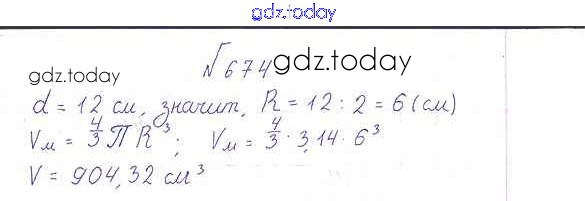 gdz.today
№674 gdz.today
gdz.today
d = 12 см, значит, R = 12 : 2 = 6 (см)
Vм = 4/3 П R³; Vм = 4/3 · 3,14 · 6³
V = 904,32 см³